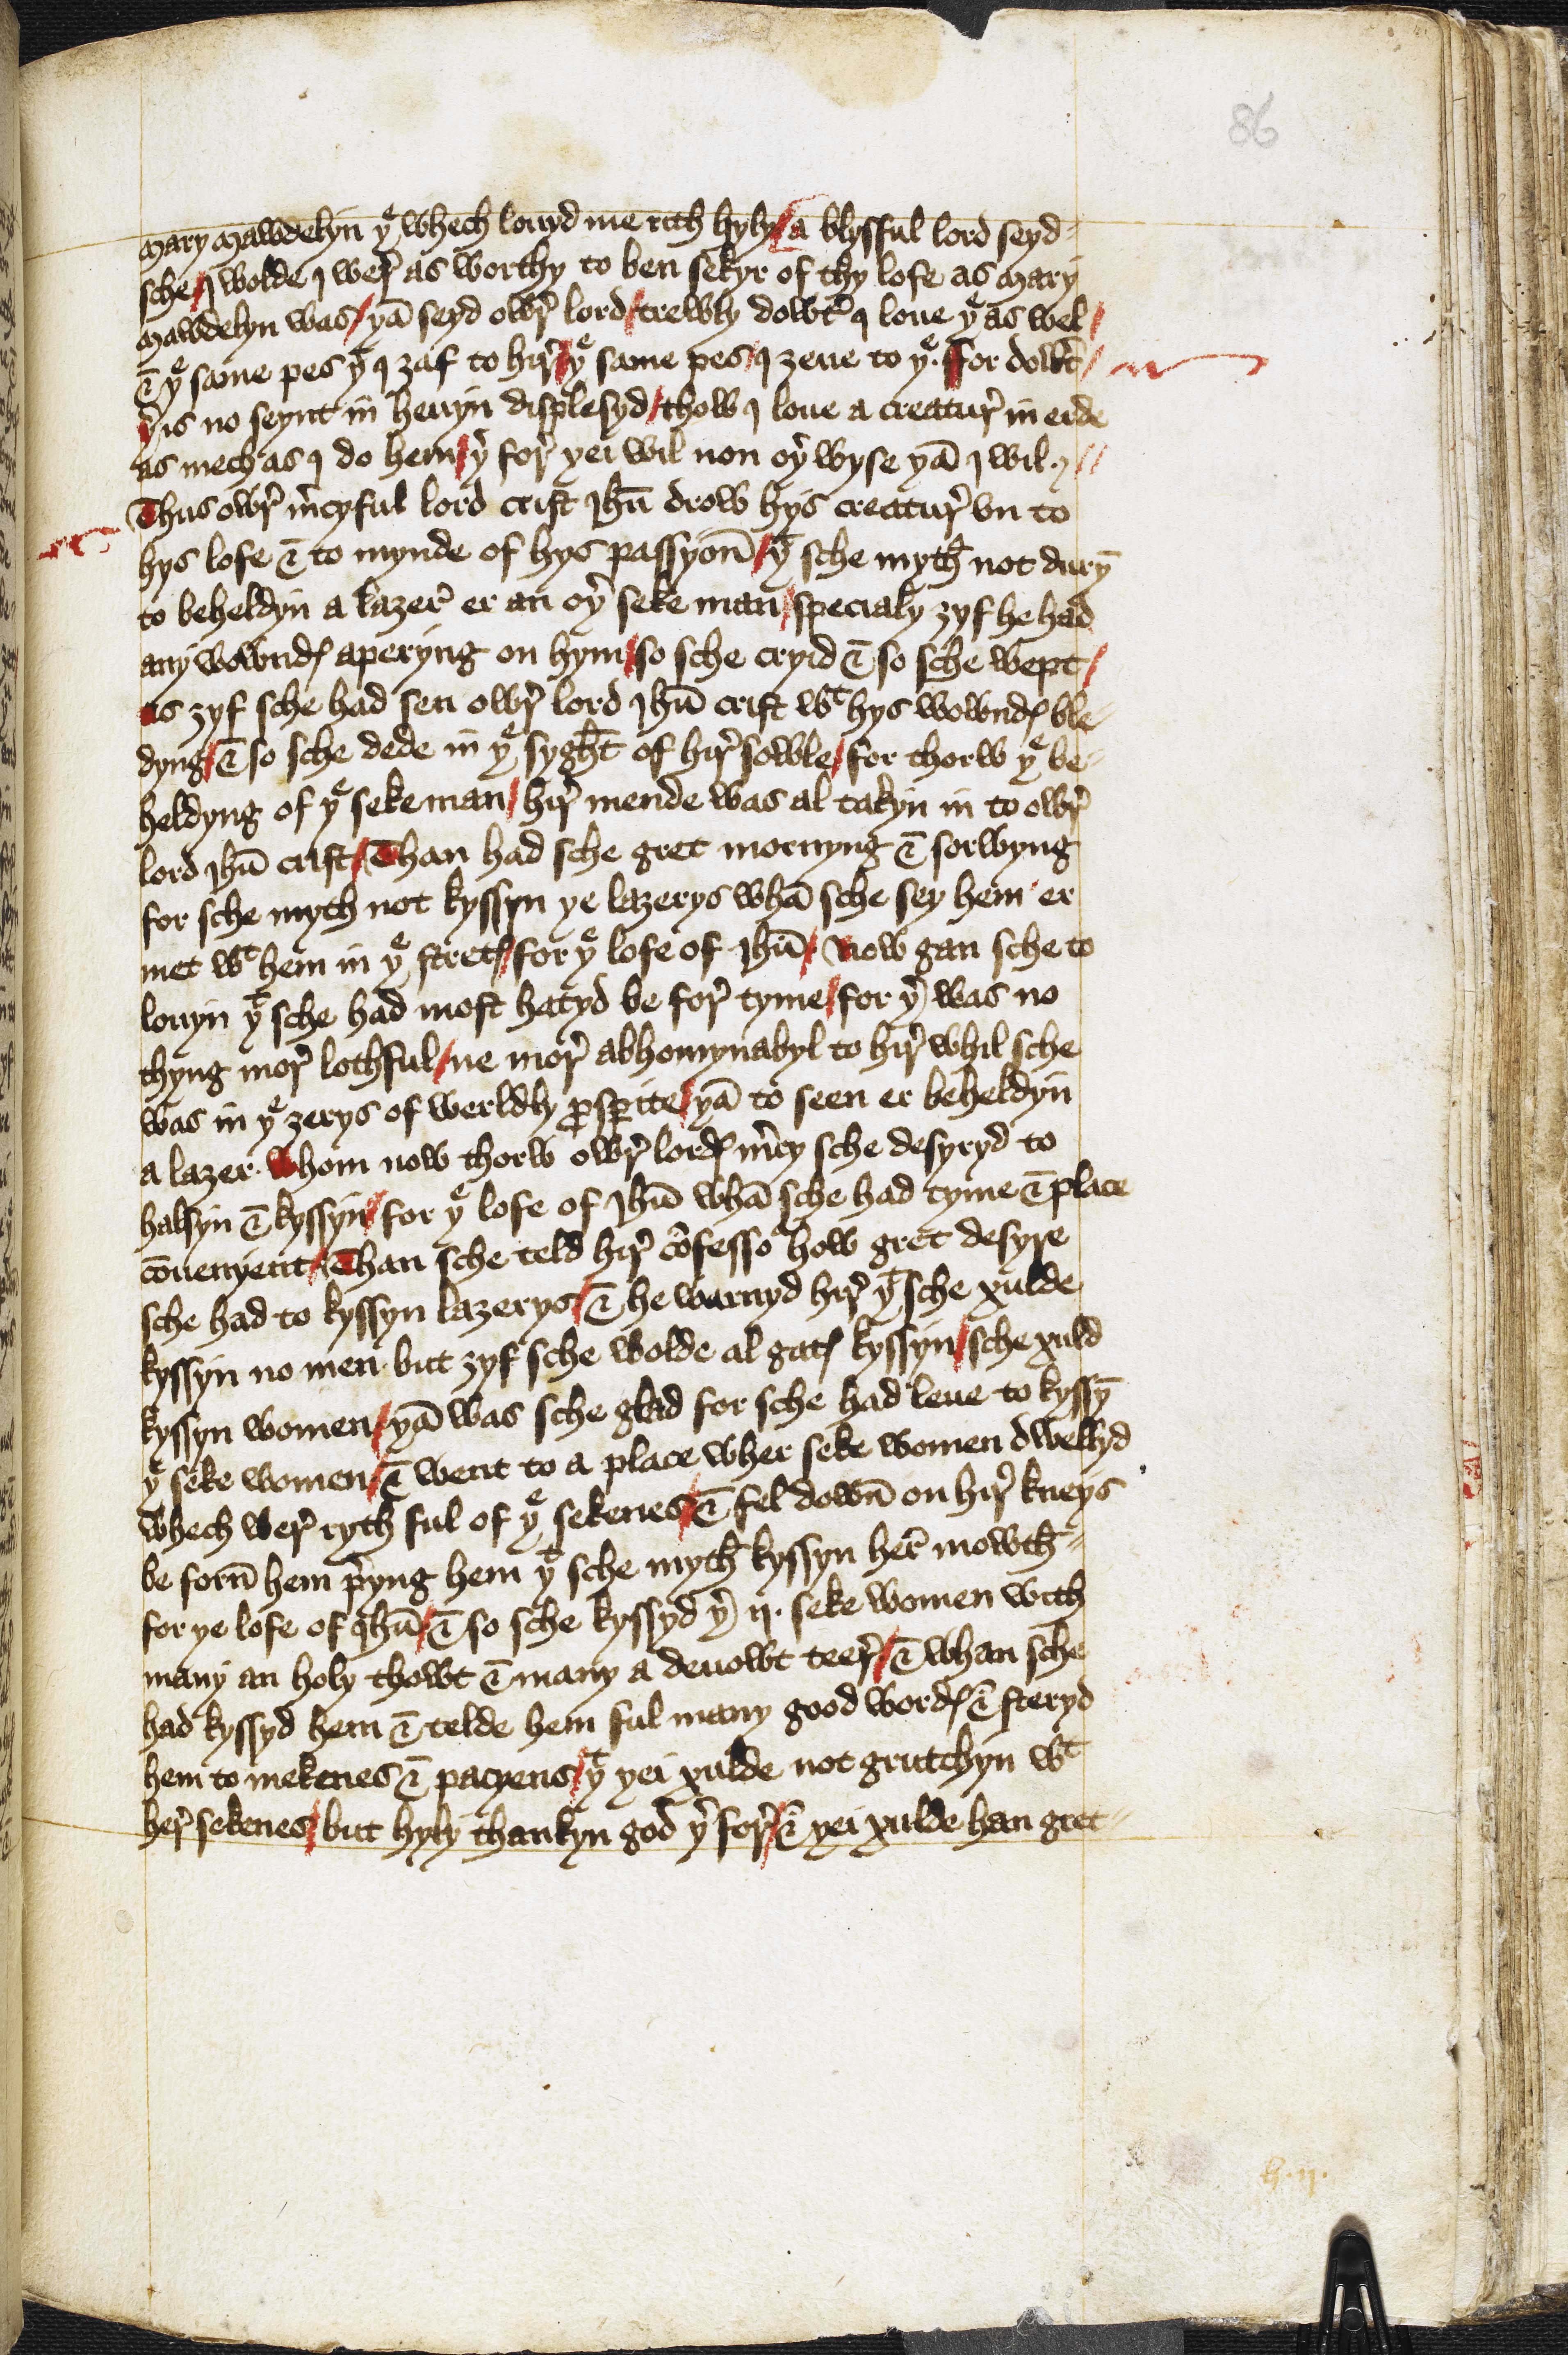 86
Mary Mawdelyn yͤ whech louyd me rith hyly / a blysful lord seyd
sche / I wolde I werͬ as worthy to ben sekyr of thy lofe as Mary
Mawdelyn was / yā seyd owrͬ lord / trewly dowtͬ I loue yͤ as wel /
& yͤ same pes yͭ I zaf to hirͬ / yͤ same pes I zeue to yͤ. ffor dowtͬ /
yͬ is no seynt in heuyn displesyd / thow I loue a creaturͬ in erde
as mech as I do hem / yͬ forͬ yei wil non oyͬ wyse yā I wil. //
Thus owrͬ mͬcyful lord crist Jhū drow hys creaturͬ vn to
hys lofe & to mynde of hys passyon̄ / yͭ sche myth not dury̅
to beheldyn a lazerͬ er an oyͬ seke man / specialy zyf he had
any wowndꝭ aperyng on hym / so sche cryid & so sche wept /
as zyf sche had sen owrͬ lord Jhū crist wͭ hys wowndꝭ ble
dyng / & so sche dede in yͤ syght of hirͬ sowle / for thorw yͤ be
heldyng of yͤ seke man / hirͬ mende was al takyn in to owrͬ
lord Jhū crist / Than had sche gret mornyng & sorwyng
for sche myth not kyssyn ye lazerys whā sche sey hem er
met wͭ hem in yͤ stretꝭ / for yͤ lofe of Jhū / Now gan sche to
louyn yͭ sche had most hatyd be forͬ tyme / for yͬ was no
thyng morͬ lothful / ne morͬ abhomynabyl to hirͬ whil sche
was in yͤ zerys of werldly ꝓsꝑite / yā to seen er beheldyn
a lazer. Whom now thorw owrͬ lordꝭ mͬcy sche desyryd to
halsyn & kyssyn / for yͤ lofe of Jhū whā sche had tyme & place
cōuenyent / Than sche teld hirͬ cōfessoͬ how gret desyre
sche had to kyssyn lazerys / & he warnyd hirͬ yͭ sche xulde
kyssyn no men. but zyf sche wolde al gatꝭ kyssyn / sche xuld
kyssyn women / yā was sche glad for sche had leue to kyssy̅
yͤ seke women / & went to a place wher seke women dwellyd
whech werͬ ryth ful of yͤ sekenes / & fel down̄ on hirͬ kneys
be forn̄ hem pͬyng hem yͭ sche myth kyssyn herͬ mowth
for ye lofe of Jhū / & so sche kyssyd yͬ ij. seke women with
many an holy thowt & many a deuowt teerͬ / & whan sche
had kyssyd hem & telde hem ful many good wordꝭ & steryd
hem to mekenes & pacyens / yͭ yei xulde not grutchyn wͭ
herͬ sekenes / but hyly thankyn god yͬ forͬ / & yei xulde han gret
h.ij.